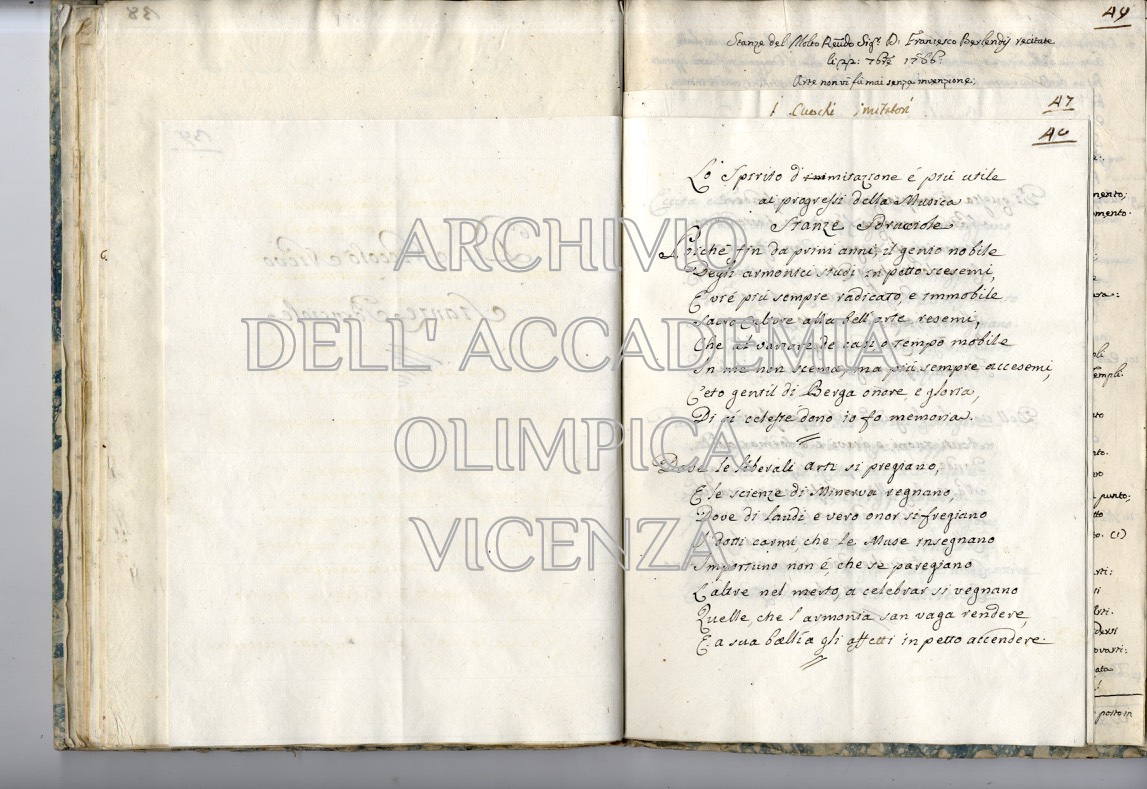 49
Stanze del Molto Revdo Sigr. D. Francesco Berlendij recitate
li 22: 7bre 1766.
Arte non vi fù mai senza invenzione;
47
i Cuochi imitatori
46
Lo Spirito d'imitazione é più utile
ai progressi della Musica
Stanze Sdrucciole
Poiché fin da primi anni, il genio nobile
Degli armonici studi in petto scesemi,
E vié più sempre radicato, e immobile
Sacro Cultore alla bell'arte resemi,
Che al variare de casi o Tempo mobile
In me non scema, ma più sempre accesemi,
Ceto gentil di Berga onore e gloria,
Di sì celeste dono io fo memoria.
Dove le liberali Arti si pregiano,
E le scienze di Minerva regnano,
Dove di laudi e vero onor si fregiano
I dotti carmi, che le Muse insegnano
Importuno non é, che se paregiano
L'altre nel merto, a celebrar si vegnano
Quelle, che l'armonia san vaga rendere,
E a sua balìa gli affetti in petto accendere.
138
139
6.
nento;
mento.
ara:
oli
empli.
punto;
(1)
posto in
ARCHIVIO
DELL'ACCADEMIA
OLIMPICA
VICENZA